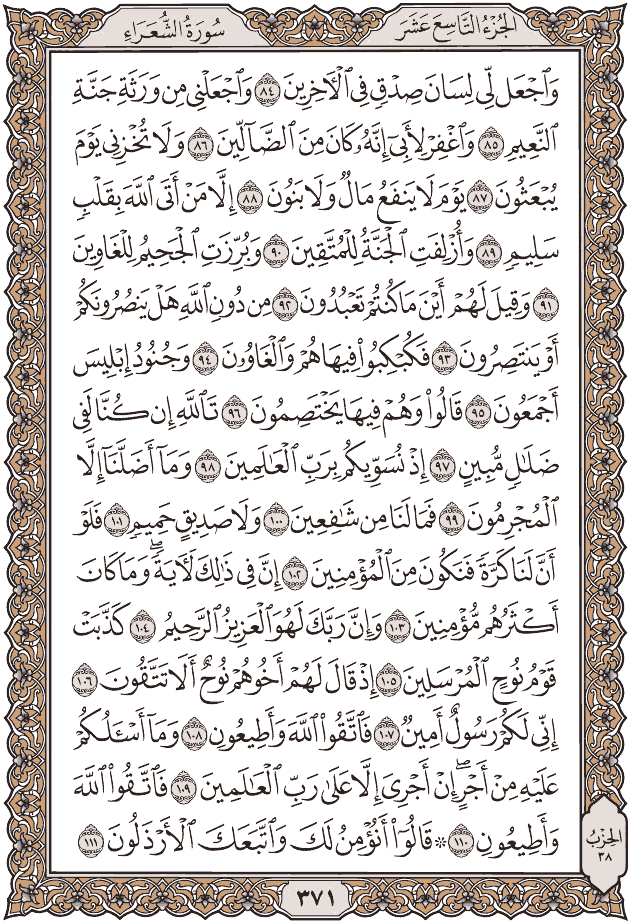 الجزء التاسع عشر
سورة الشعراء
وَٱجْعَل لِّي لِسَانَ صِدْقٍ فِي ٱلْأٓخِرِينَ ٨٤ وَٱجْعَلْنِي مِن وَرَثَةِ جَنَّةِ
ٱلنَّعِيمِ ٨٥ وَٱغْفِرْ لِأَبِيٓ إِنَّهُۥ كَانَ مِنَ ٱلضَّآلِّينَ ٨٦ وَلَا تُخْزِنِي يَوْمَ
يُبْعَثُونَ ٨٧ يَوْمَ لَا يَنفَعُ مَالٌ وَلَا بَنُونَ ٨٨ إِلَّا مَنْ أَتَى ٱللَّهَ بِقَلْبٍ
سَلِيمٍ ٨٩ وَأُزْلِفَتِ ٱلْجَنَّةُ لِلْمُتَّقِينَ ٩٠ وَبُرِّزَتِ ٱلْجَحِيمُ لِلْغَاوِينَ
٩١ وَقِيلَ لَهُمْ أَيْنَ مَا كُنتُمْ تَعْبُدُونَ ٩٢ مِن دُونِ ٱللَّهِ هَلْ يَنصُرُونَكُمْ
أَوْ يَنتَصِرُونَ ٩٣ فَكُبْكِبُوا۟ فِيهَا هُمْ وَٱلْغَاوُۥنَ ٩٤ وَجُنُودُ إِبْلِيسَ
أَجْمَعُونَ ٩٥ قَالُوا۟ وَهُمْ فِيهَا يَخْتَصِمُونَ ٩٦ تَٱللَّهِ إِن كُنَّا لَفِي
ضَلَٰلٍ مُّبِينٍ ٩٧ إِذْ نُسَوِّيكُم بِرَبِّ ٱلْعَٰلَمِينَ ٩٨ وَمَآ أَضَلَّنَآ إِلَّا
ٱلْمُجْرِمُونَ ٩٩ فَمَا لَنَا مِن شَٰفِعِينَ ١٠٠ وَلَا صَدِيقٍ حَمِيمٍ ١٠١ فَلَوْ
أَنَّ لَنَا كَرَّةً فَنَكُونَ مِنَ ٱلْمُؤْمِنِينَ ١٠٢ إِنَّ فِي ذَٰلِكَ لَأٓيَةً ۖ وَمَا كَانَ
أَكْثَرُهُم مُّؤْمِنِينَ ١٠٣ وَإِنَّ رَبَّكَ لَهُوَ ٱلْعَزِيزُ ٱلرَّحِيمُ ١٠٤ كَذَّبَتْ
قَوْمُ نُوحٍ ٱلْمُرْسَلِينَ ١٠٥ إِذْ قَالَ لَهُمْ أَخُوهُمْ نُوحٌ أَلَا تَتَّقُونَ ١٠٦
إِنِّي لَكُمْ رَسُولٌ أَمِينٌ ١٠٧ فَٱتَّقُوا۟ ٱللَّهَ وَأَطِيعُونِ ١٠٨ وَمَآ أَسْـَٔلُكُمْ
عَلَيْهِ مِنْ أَجْرٍ ۖ إِنْ أَجْرِيَ إِلَّا عَلَىٰ رَبِّ ٱلْعَٰلَمِينَ ١٠٩ فَٱتَّقُوا۟ ٱللَّهَ
وَأَطِيعُونِ ١١٠ ۞ قَالُوٓا۟ أَنُؤْمِنُ لَكَ وَٱتَّبَعَكَ ٱلْأَرْذَلُونَ ١١١
الحزب
٣٨
٣٧١